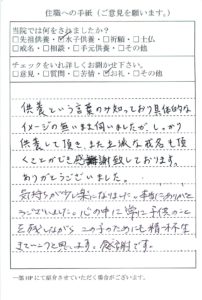 住職への手紙(ご意見を願います。)
当院では何をされましたか?
□先祖供養・☑水子供養・□祈願・□土仏
□戒名・□相談・□手元供養・□その他
チェックをいれ詳しくお聞かせ下さい。
□意見・□質問・□苦情・☑お礼・□その他
供養という言葉のみ知っており具体的な
イメージの無いまま伺いましたが、しっかり
供養して頂き、また立派な戒名も頂
くことができ感謝致しております。
ありがとうございました。
気持ちが少し楽になりました。本当にありがとう
ございました。心の中に常に子供のこと
を残しながら この子のためにも精一杯生
きていこうと思います。感謝です。
一部HPにて紹介させていただく場合がございます。